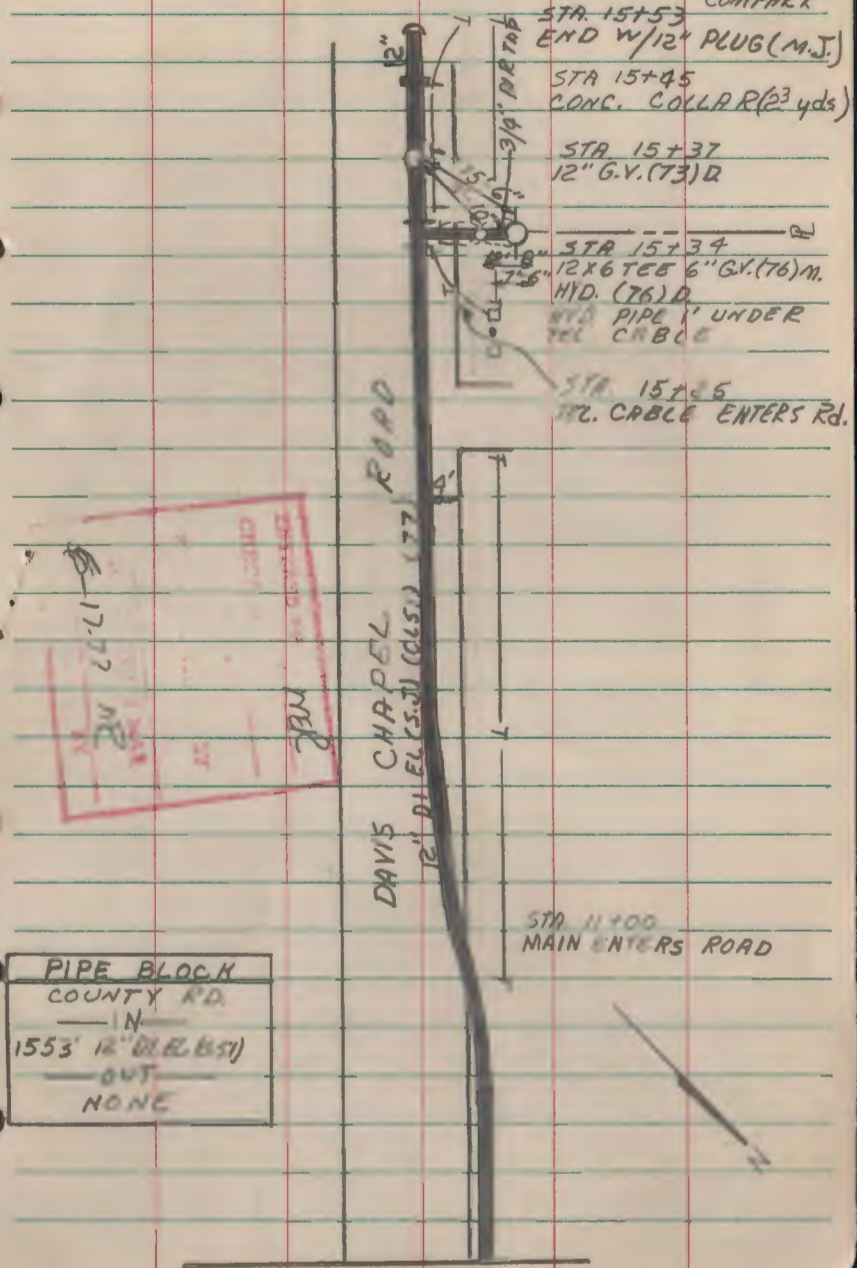 STA. 15+53
END W/12" PLUG (M.J.)
STA 15+45
CONC. COLLAR (2³ yds)
STA 15+37
12" G.V. (73) D
STA 15+34
12X6 TEE 6" G.V. (76) M.
HYD. (76) D
HYD PIPE 1' UNDER
TEL CABLE
STA. 15+25
TEL. CABLE ENTERS Rd.
12"
3/4" AIR TAP
15'
10'
7'-6"
4'
DAVIS CHAPEL ROAD
12" DI EL (S.J.) (CL51) (77)
STA. 11+00
MAIN ENTERS ROAD
PIPE BLOCK
COUNTY RD.
IN
1553' 12" DI EL (S51)
OUT
NONE
N